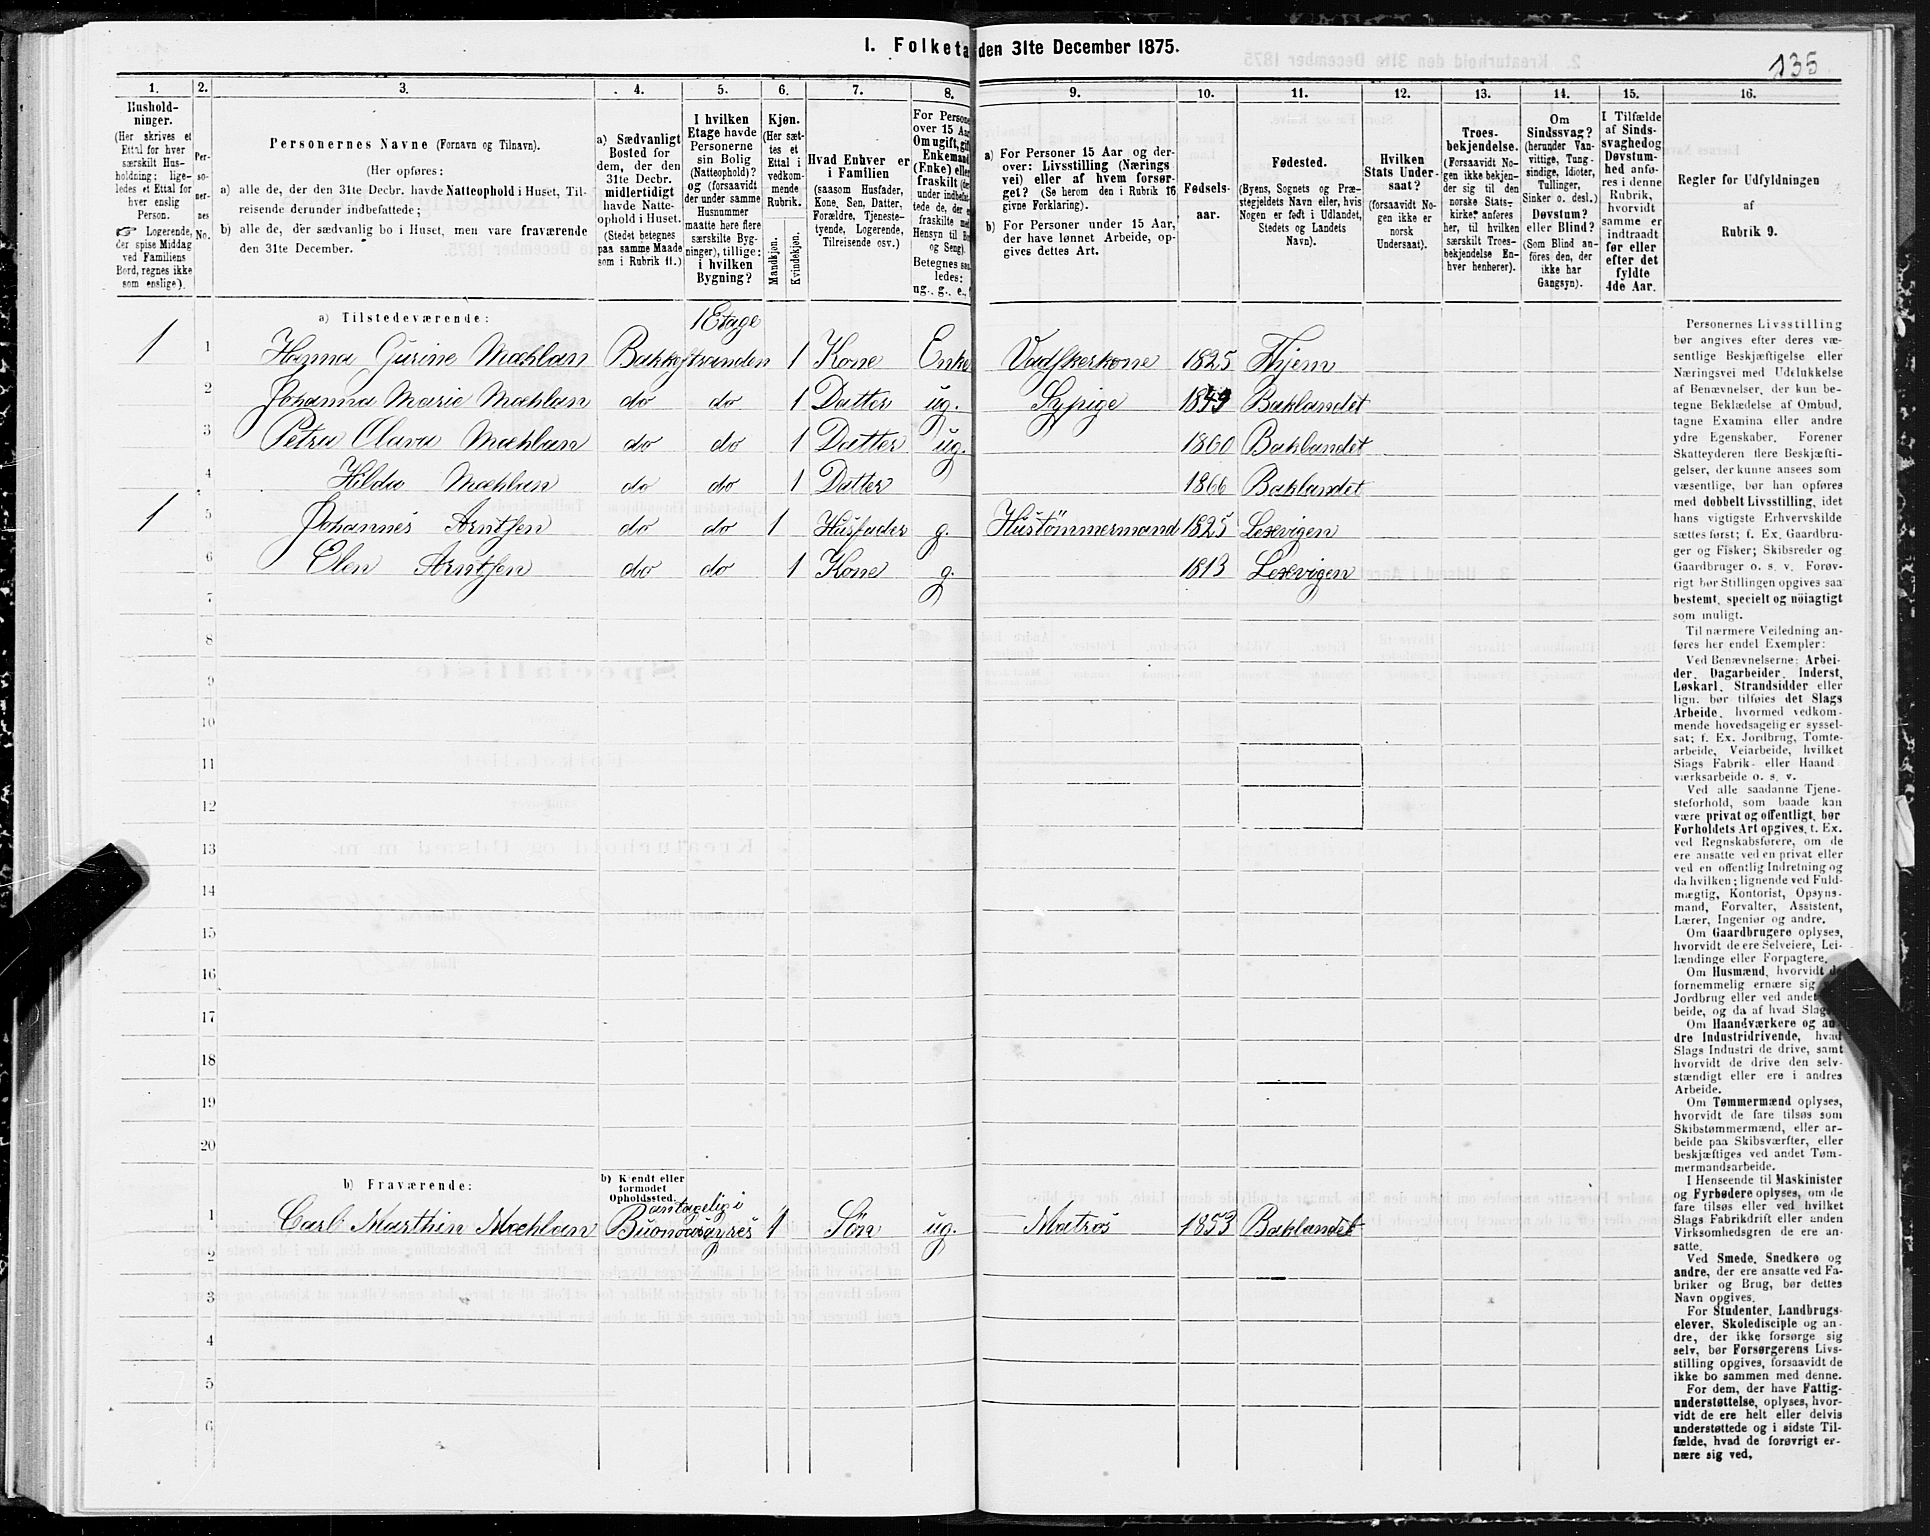 I. Folketa den 31te December 1875.
135
1. 2. 3. 4. 5. 6. 7. 8. 9. 10. 11. 12. 13. 14. 15. 16.
Hushold-
ninger.
(Her skrives et
Ettal for hver
særskilt Hus-
holdning; lige-
ledes et Ettal for
hver enslig
Person.
☞ Logerende,
der spise Middag
ved Familiens
Bord, regnes ikke
som enslige).
Per-
so-
ner-
nes
No.
Personernes Navne (Fornavn og Tilnavn).
(Her opføres:
a) alle de, der den 31te Decbr. havde Natteophold i Huset, Til-
reisende derunder indbefattede;
b) alle de, der sædvanlig bo i Huset, men vare fraværende
den 31te December.
a) Sædvanligt
Bosted for
dem, der den
31te Decbr.
midlertidigt
havde Natte-
ophold i Huset.
(Stedet betegnes
paa samme Maade
som i Rubrik 11.)
I hvilken
Etage havde
Personerne
sin Bolig
(Natteophold)?
og (forsaavidt
der under samme
Husnummer
maatte høre flere
særskilte Byg-
ninger), tillige:
i hvilken
Bygning?
Kjøn.
(Her sæt-
tes et
Ettal i
vedkom-
mende
Rubrik.
Mandkjøn.
Kvindekjøn.
Hvad Enhver er
i Familien
(saasom Husfader,
Kone, Søn, Datter,
Forældre, Tjeneste-
tyende, Logerende,
Tilreisende osv.)
For Persone
over 15 Aar
Om ugift, gif
Enkemand
(Enke) elle
fraskilt (de
under indbefat-
tede de, der e
fraskilte med
Hensyn til Bo
og Seng).
Betegnes saa
ledes:
ug., g., e.,
a) For Personer 15 Aar og der-
over: Livsstilling (Nærings
vei) eller af hvem forsør-
get? (Se herom den i Rubrik 16
givne Forklaring).
b) For Personer under 15 Aar,
der have lønnet Arbeide, op-
gives dettes Art.
Fødsels-
aar.
Fødested.
(Byens, Sognets og Præ-
stegjeldets Navn eller, hvis
Nogen er født i Udlandet,
Stedets og Landets
Navn).
Hvilken
Stats Under-
saat?
(forsaavidt No-
gen ikke er
norsk
Undersaat).
Troes-
bekjendelse.
(Forsaavidt No-
gen ikke bekjen-
der sig til den
norske Stats-
kirke, anføres
her, til hvilken
særskilt Troes-
bekjendelse En-
hver henhører).
Om
Sindssvag?
(herunder Van-
vittige, Tung-
sindige, Idioter,
Tullinger,
Sinker o. desl.)
Døvstum?
eller Blind?
(Som Blind an-
føres den, der
ikke har
Gangsyn).
I Tilfælde
af Sinds-
svaghed og
Døvstum-
hed anfø-
res i denne
Rubrik,
hvorvidt
samme er
indtraadt
før eller
efter det
fyldte
4de Aar.
Regler for Udfyldningen
af
Rubrik 9.
a) Tilstedeværende: 1 Etage
1 1 Hanna Gurine Mæhlan Bakkestranden 1 Kone Enke Vadskerkone 1825 Thjem
2 Johanna Marie Mæhlan do do 1 Datter ug. Sypige 1849 Baklandet
3 Petra Olava Mæhlan do do 1 Datter ug. 1860 Baklandet
4 Hilda Mæhlan do do 1 Datter 1866 Baklandet
1 5 Johannes Arntsen do do 1 Husfader g. Hustømmermand 1825 Lexvigen
6 Elen Arntsen do do 1 Kone g. 1813 Lexvigen
7
8
9
10
11
12
13
14
15
16
17
18
19
20
b) Fraværende: b) Kjendt eller
formodet
Opholdssted.
antagelig i
1 Carl Marthin Mæhlan Buonosayres 1 Søn ug. Matros 1853 Baklandet
2
3
4
5
6
Personernes Livsstilling
bør angives efter deres væ-
sentlige Beskjæftigelse eller
Næringsvei med Udelukkelse
af Benævnelser, der kun be-
tegne Beklædelse af Ombud,
tagne Examina eller andre
ydre Egenskaber. Forener
Skatteyderen flere Beskjæfti-
gelser, der kunne ansees som
væsentlige, bør han opføres
med dobbelt Livsstilling, idet
hans vigtigste Erhvervskilde
sættes først; f. Ex. Gaardbru-
ger og Fisker; Skibsreder og
Gaardbruger o. s. v. Forøv-
rigt bør Stillingen opgives saa
bestemt, specielt og nöiagtigt
som muligt.
Til nærmere Veiledning an-
føres her endel Exempler:
Ved Benævnelserne: Arbei-
der, Dagarbeider, Inderst,
Løskarl, Strandsidder eller
lign. bør tilføies det Slags
Arbeide, hvormed vedkom-
mende hovedsagelig er syssel-
sat; f. Ex. Jordbrug, Tomte-
arbeide, Veiarbeide, hvilket
Slags Fabrik- eller Haand-
værksarbeide o. s. v.
Ved alle saadanne Tjene-
steforhold, som baade kan
være privat og offentligt, bør
Forholdets Art opgives, t. Ex.
ved Regnskabsførere, om de
ere ansatte ved en privat eller
ved en offentlig Indretning og
da hvilken; lignende ved Fuld-
mægtig, Kontorist, Opsyns-
mand, Forvalter, Assistent,
Lærer, Ingeniør og andre.
Om Gaardbrugere oplyses,
hvorvidt de ere Selveiere, Lei-
lændinge eller Forpagtere.
Om Husmænd, hvorvidt de
fornemmelig ernære sig
Jordbrug eller ved andet
beide, og da af hvad Slags
Om Haandværkere og an
dre Industridrivende, hvad
Slags Industri de drive, samt
hvorvidt de drive den selv-
stændigt eller ere i andres
Arbeide.
Om Tømmermænd oplyses,
hvorvidt de fare tilsøs som
Skibstømmermænd, eller ar-
beide paa Skibsværfter, eller
beskjæftiges ved andet Tøm-
mermandsarbeide.
I Henseende til Maskinister
og Fyrbødere oplyses, om de
fare tilsøs eller ved hvilket
Slags Fabrikdrift eller anden
Virksomhedsgren de ere an-
satte.
Ved Smede, Snedkere og
andre, der ere ansatte ved Fa-
briker og Brug, bør dettes
Navn opgives.
For Studenter, Landbrugs-
elever, Skoledisciple og an-
dre, der ikke forsørge sig
selv, bør Forsørgerens Livs-
stilling opgives, forsaavidt de
ikke bo sammen med denne.
For dem, der have Fattig-
understøttelse, oplyses, hvor-
vidt de ere helt eller delvis
understøttede og i sidste Til-
fælde, hvad de forøvrigt er-
nære sig ved.